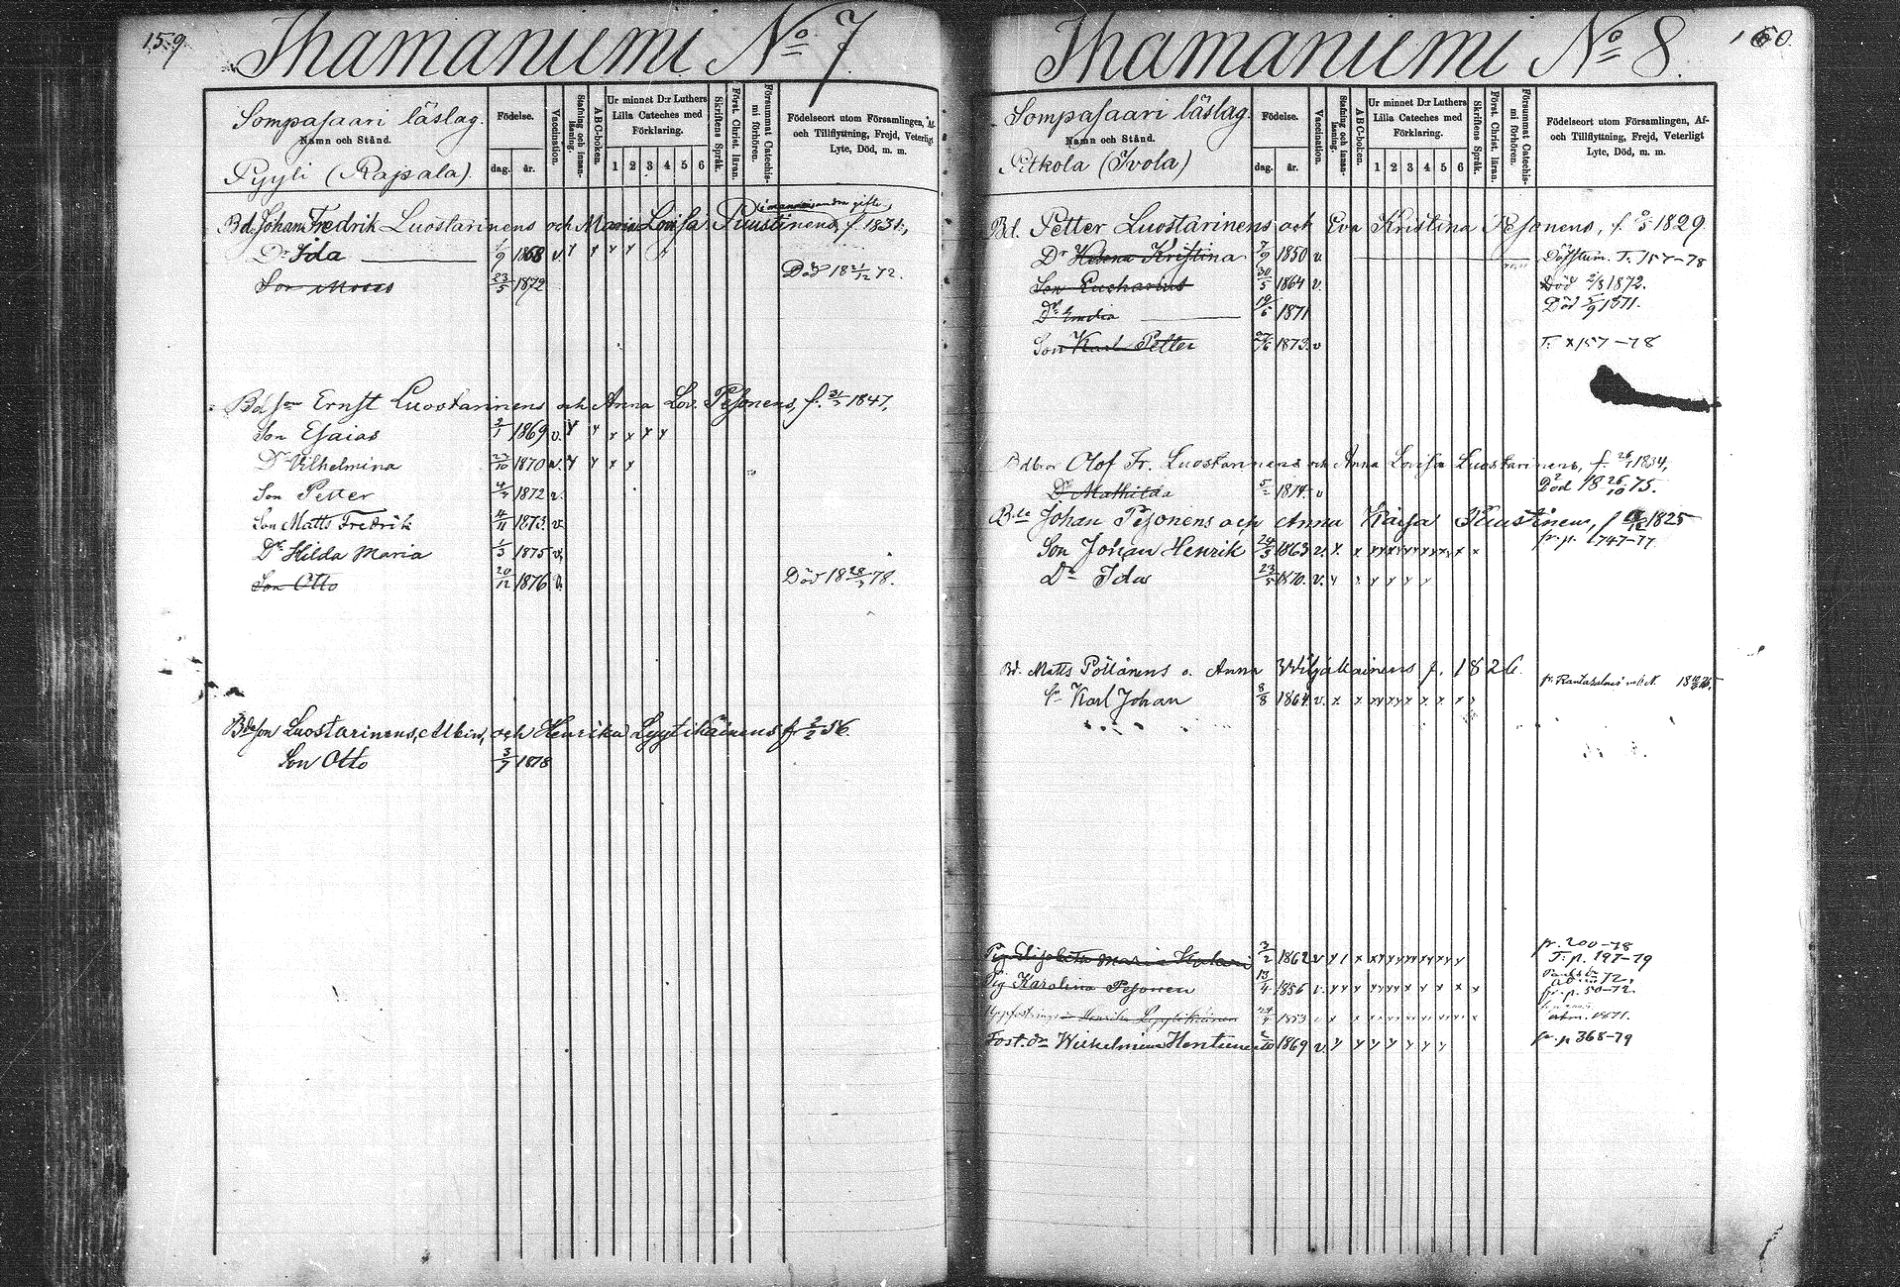 159.
Ihamaniemi No 7.
Sompasaari läslag.
Namn och Stånd.
Pyyli (Rapala).
Födelse.
dag. år.
Vaccination.
Stafning och innan-läsning.
A B C-boken.
Ur minnet D:r Luthers Lilla Cateches med Förklaring.
1 2 3 4 5 6
Skriftens Språk.
Först. Christ. läran.
Försummat Catechis-mi förhören.
Födelseort utom Församlingen, Af- och Tillflyttning, Frejd, Veterligt Lyte, Död, m. m.
Bd. Johan Fredrik Luostarinens och Maria Lovisa Puustinens, f. 1831,
Dr Ida 1/9 1868 v.
Son Moses 23/5 1872 Död 18 21/12 72.
Bdson Ernst Luostarinens och Anna Lov. Pesonens, f. 1847,
Son Esaias 1869 v.
Dr Vilhelmina 1870 v.
Son Petter 1872 v.
Son Matts Fredrik 4/11 1873 v.
Dr Hilda Maria 1/3 1875 v.
Son Otto 20/12 1876 v. Död 18 78.
Bdeson Luostarinens, Albin, och Henrika Lyytikäinens f. 2/2 56.
Son Otto 3/7 1878
160.
Ihamaniemi No 8.
Sompasaari läslag.
Namn och Stånd.
Pitkola (Ivola)
Födelse.
dag. år.
Vaccination.
Stafning och innan-läsning.
A B C-boken.
Ur minnet D:r Luthers Lilla Cateches med Förklaring.
1 2 3 4 5 6
Skriftens Språk.
Först. Christ. läran.
Försummat Catechis-mi förhören.
Födelseort utom Församlingen, Af- och Tillflyttning, Frejd, Veterligt Lyte, Död, m. m.
Bd. Petter Luostarinens och Eva Kristina Pesonens, f. 1829
Dr Helena Kristina 7/9 1850 v T. 157-78
Son Eucharius 30/5 1864 v. Död 1872.
Dr Emilia 19/6 1871 Död 5/9 1871.
Son Karl Petter 1873 v T. 157-78
Bdbror Olof Fr. Luostarinens och Anna Lovisa Luostarinens, f. 1834,
Dr Mathilda 5/2 1874 v Död 18 26/10 75.
Johan Pesonens och Anna Kaisa Puustinens, f. 1825
Son Johan Henrik 1863 v. fr. p. 747-77
Dr Ida 23/5 1870. v.
Bd. Matts Pöllänens o. Anna Wiljakainens f. 1826
Sn Karl Johan 8/8 1864 v.
Pig Elisabeth Maria 3/2 1862 v fr. 200-78
T. p. 197-79
Pig Karolina Pesonen 13/4 1856 v. fr. p. 50-72.
Henrika Lyytikäinen 1853 1871.
Fost. dr Wilhelmina Hentunen 1869 v. fr. p 368-79